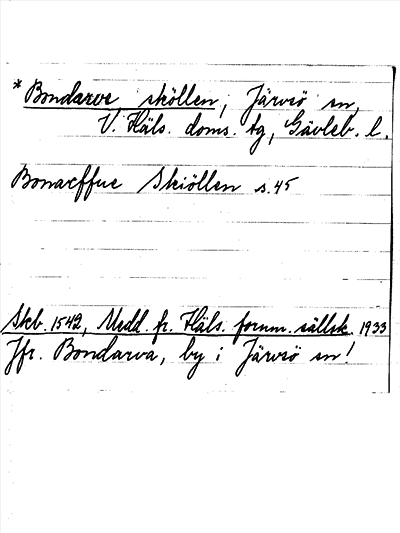 * Bondarve sköllen, Järvsö sn,
V. Häls. doms. tg, Gävleb. l.
Bonarffue Skiöllen s. 45
Skb. 1542, Medd. fr. Häls. fornm. sällsk. 1933
Jfr. Bondarva, by i Järvsö sn!